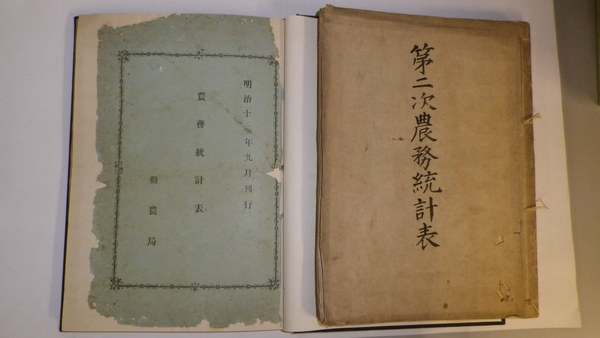 第二次農務統計表
明治十年九月刊行
農務統計表
勸農局